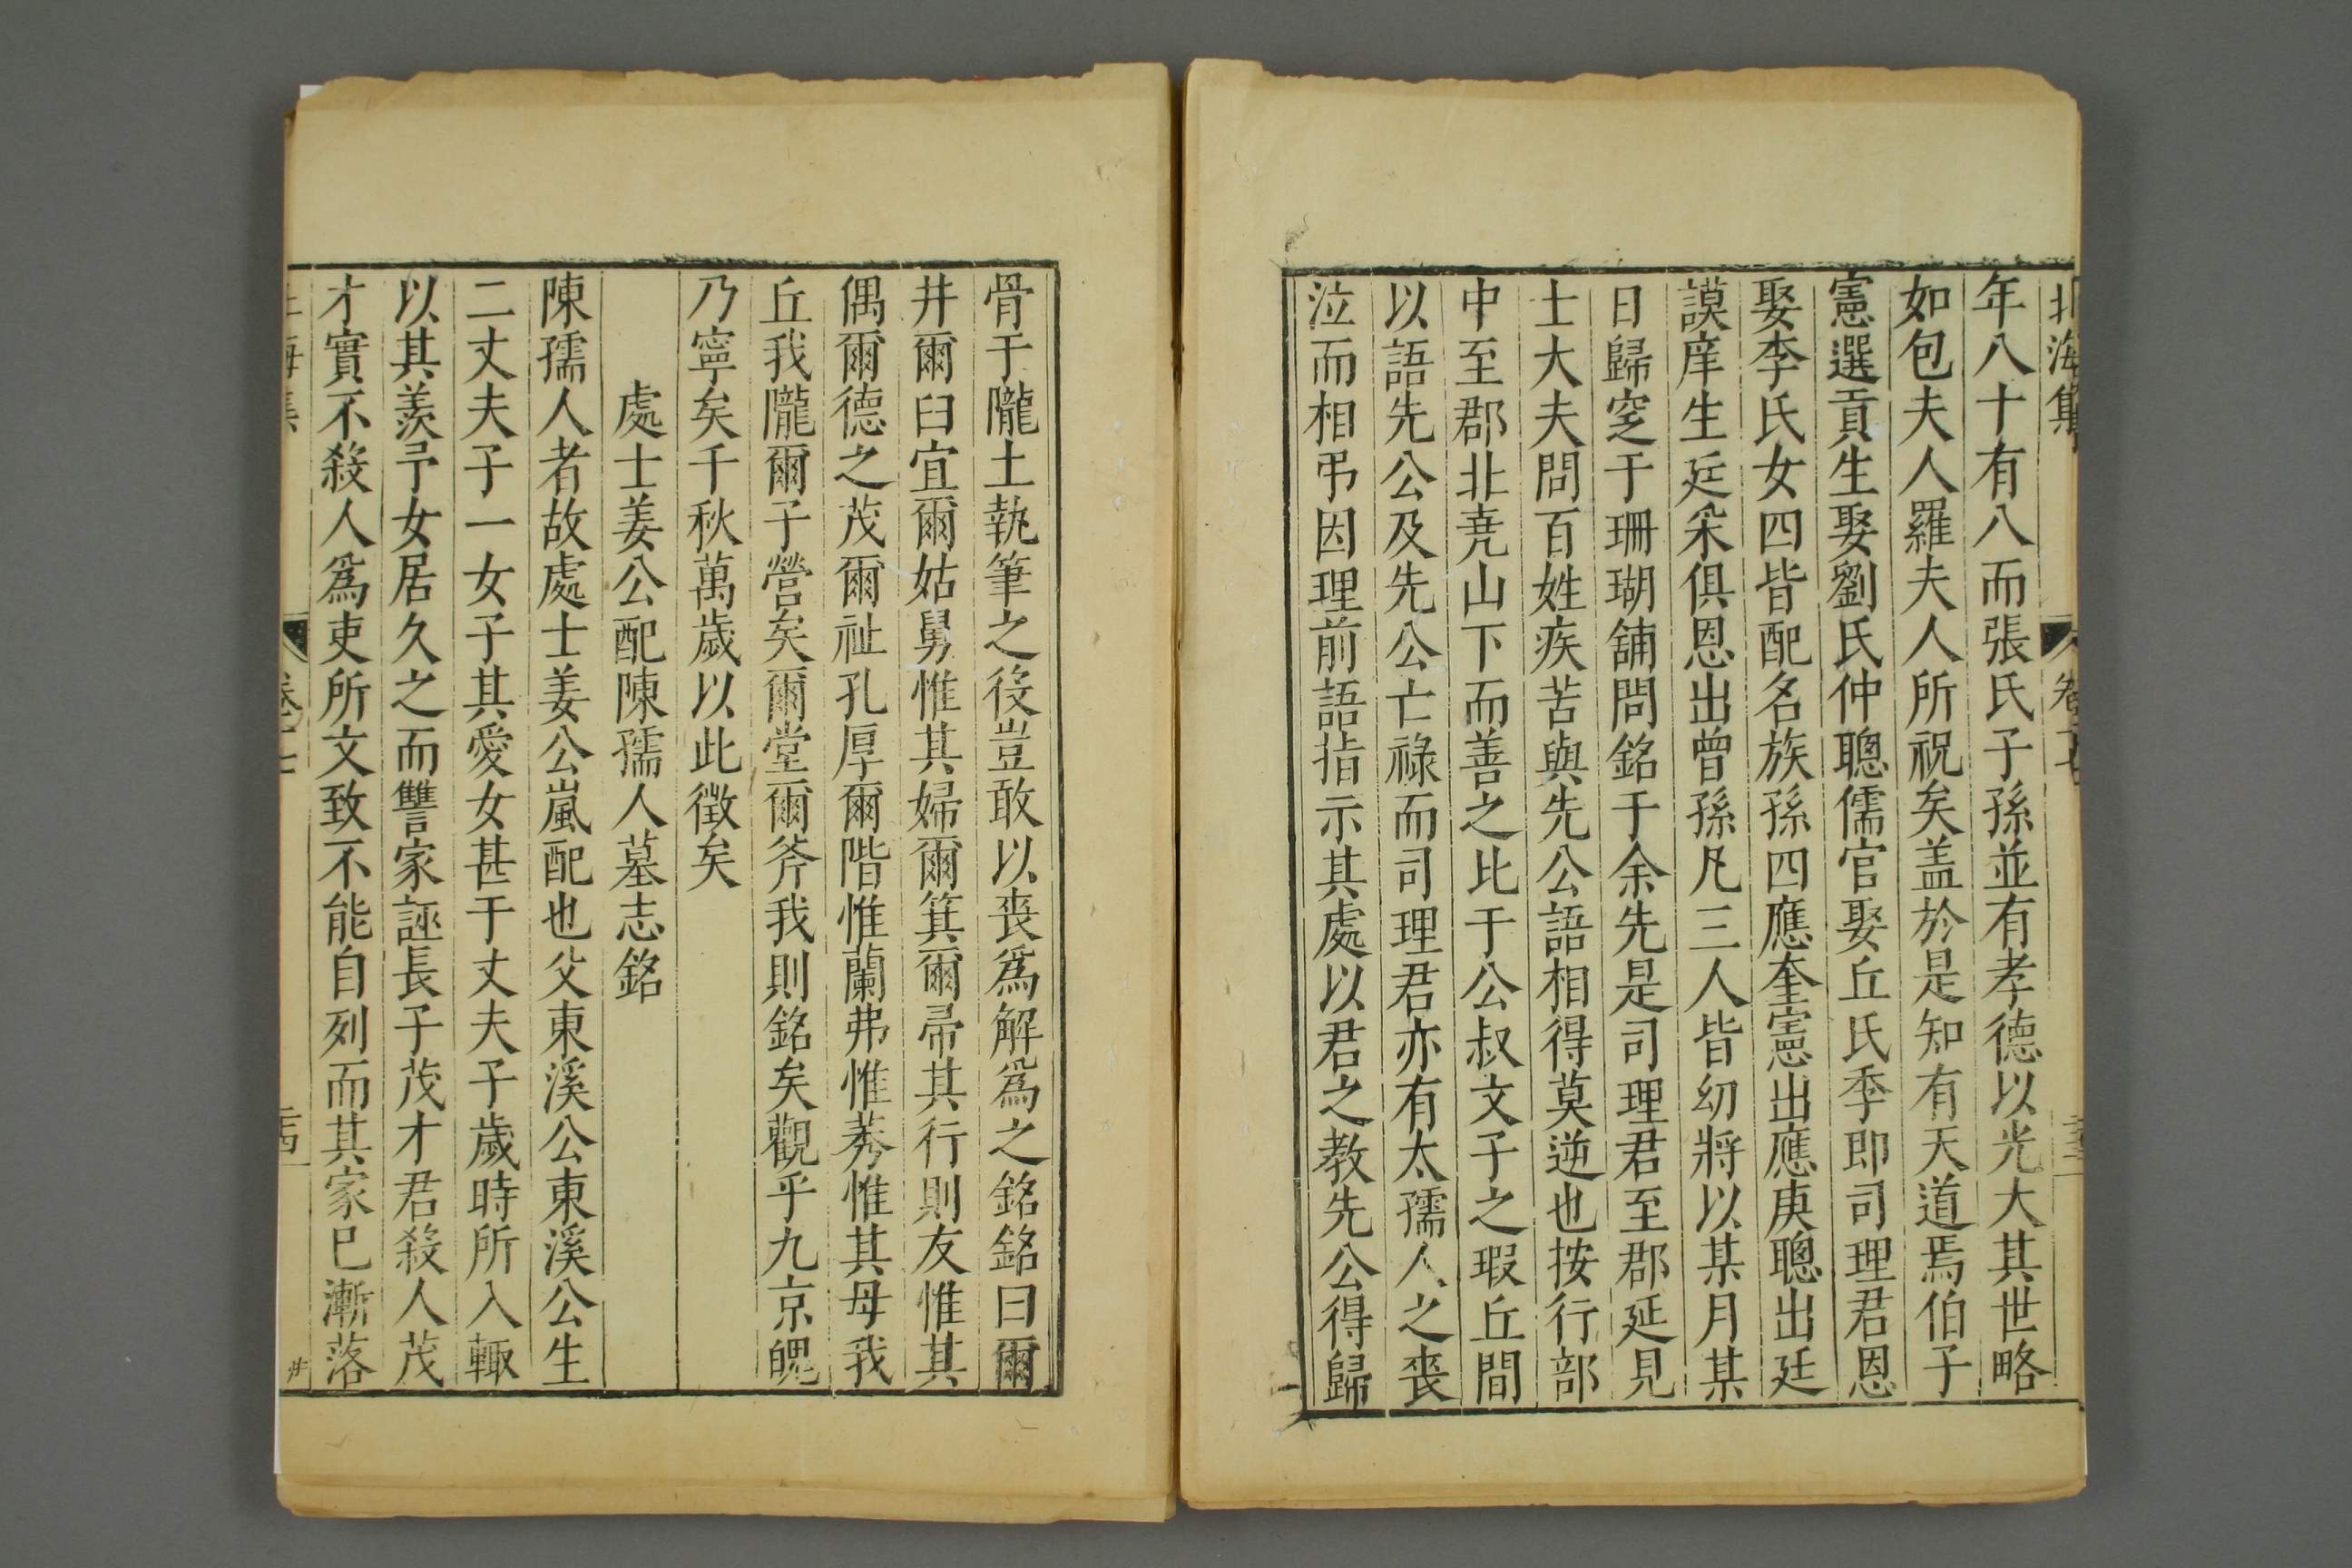 北海集
卷十七
年八十有八而張氏子孫並有孝德以光大其世略
如包夫人羅夫人所祝矣盖於是知有天道焉伯子
憲選貢生娶劉氏仲聰儒官娶丘氏季即司理君恩
娶李氏女四皆配名族孫四應奎憲出應庚聰出廷
謨庠生廷采俱恩出曾孫凡三人皆幼將以某月某
日歸窆于珊瑚舖問銘于余先是司理君至郡延見
士大夫問百姓疾苦與先公語相得莫逆也按行部
中至郡北堯山下而善之比于公叔文子之瑕丘間
以語先公及先公亡祿而司理君亦有太孺人之喪
泣而相弔因理前語指示其處以君之教先公得歸
骨于隴土執筆之役豈敢以喪為解為之銘銘曰爾
井爾臼宜爾姑舅惟其婦爾箕爾帚其行則友惟其
偶爾德之茂爾祉孔厚爾階惟蘭弗惟莠惟其母我
丘我隴爾子營矣爾堂爾斧我則銘矣觀乎九京魄
乃寧矣千秋萬歲以此徵矣
處士姜公配陳孺人墓志銘
陳孺人者故處士姜公嵐配也父東溪公東溪公生
二丈夫子一女子其愛女甚于丈夫子歲時所入輙
以其羨予女居久之而讐家誣長子茂才君殺人茂
才實不殺人爲吏所文致不能自列而其家巳漸落
海集
卷十七